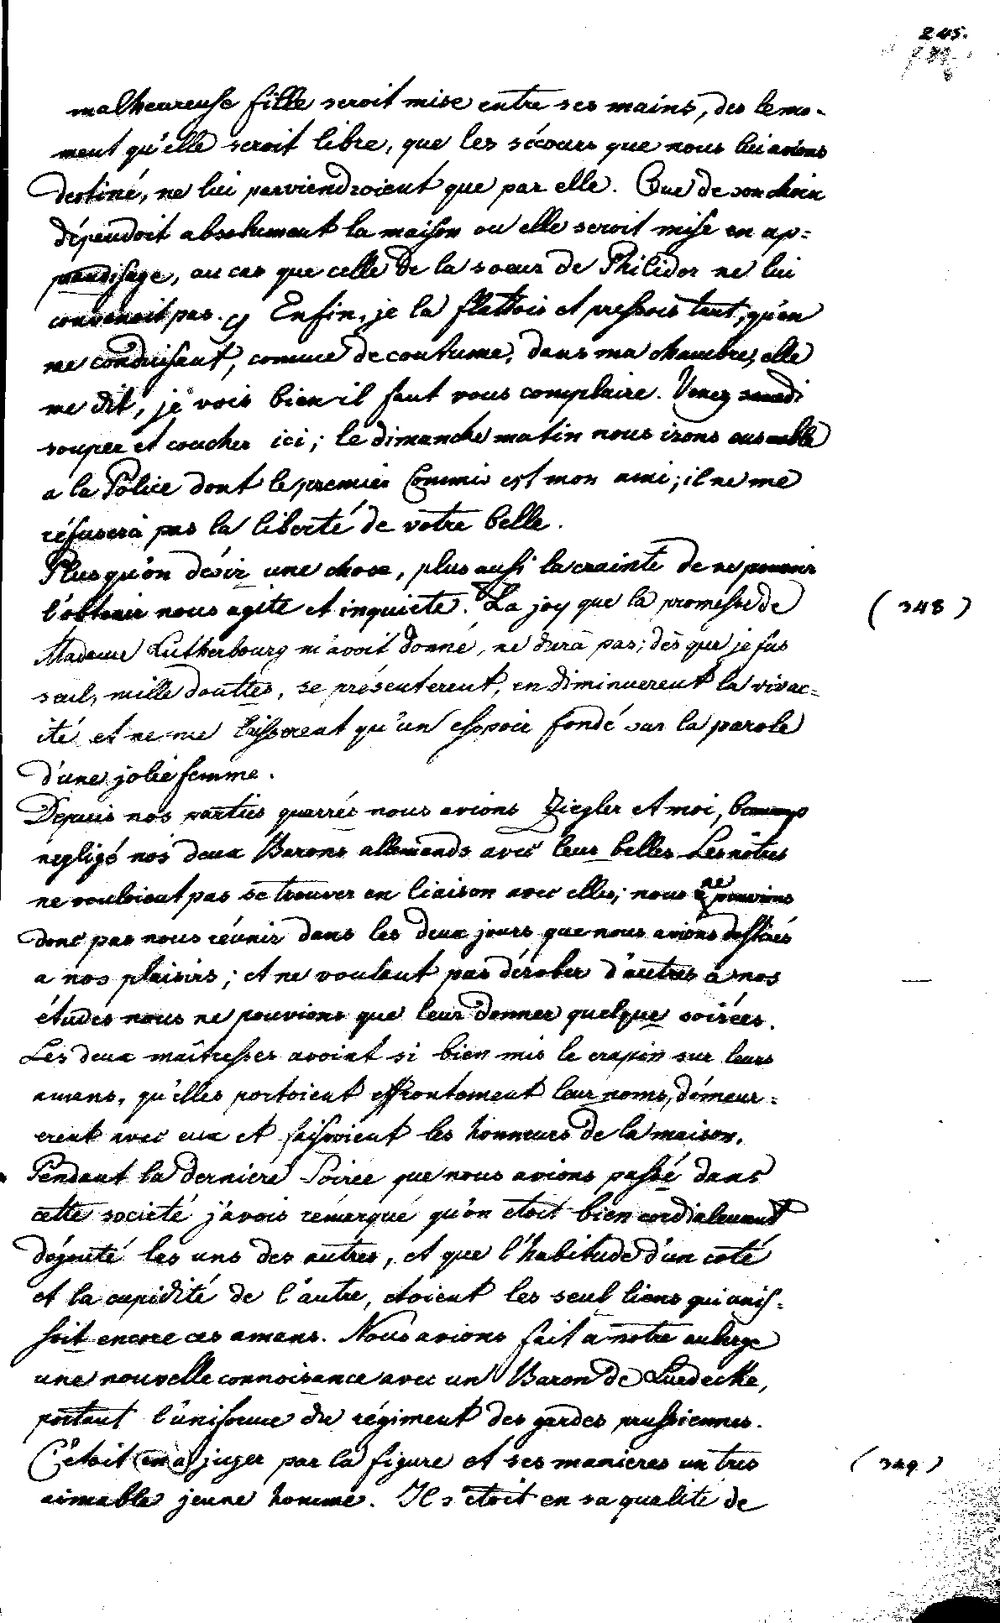 245.
malheureuse fille seroit mise entre ses mains, des le mo-
ment qu'elle seroit libre, que les sécours que nous lui avions
destiné, ne lui parviendroient que par elle. Que de son choix
dépendoit absolument la maison ou elle seroit mise en ap=
prendisage, au cas que celle de la soeur de Philidor ne lui
convenoit pas. Enfin, je la flattois et pressois tant, qu'en
me conduisant, comme de coutume, dans ma chambre, elle
me dit, je vois bien il faut vous complaire. Venez samedi
souper et coucher ici; le dimanche matin nous irons ensemble
a la Police dont le premier Commis est mon ami; il ne me
réfusera pas la liberté de votre belle.
Plus qu'on désir une chose, plus aussi la crainte de ne pouvoir
l'obtenir nous agite et inquiete. La joy que la promesse de
(348)
Madame Lutherbourg m'avoit donné, ne dura pas; dès que je fus
seul, mille douttes, se présenterent, en diminuerent la vivac=
ité et ne me laisserent qu'un espoir fondé sur la parole
d'une jolie femme.
Depuis nos parties quarrés nous avions Ziegler et moi, beaucoup
negligé nos deux Barons allemands avec leurs belles. Les nôtres
ne vouloient pas se trouver en liaison avec elles; nous ne pouvions
donc pas nous réunir dans les deux jours que nous avions destinés
a nos plaisirs; et ne voulant pas dérober d'autres à nos
études nous ne pouvions que leur donner quelque soirées.
Les deux maîtresses avoint si bien mis le crapin sur leurs
amans, qu'elles portoient effrontement leur noms, démeur=
erent avec eux et faisoient les honneurs de la maison.
Pendant la derniere soirée que nous avions passé dans
cette societé j'avois rémarqué qu'on etoit bien cordialement
dégouté les uns des autres, et que l'habitude d'un coté
et la cupidité de l'autre, etoient les seul liens qui unis-
soit encore ces amans. Nous avions fait a notre auberge
une nouvelle connoisance avec un Baron de Luedecke,
portant l'uniforme du régiment des gardes prussiennes.
C'étoit en a juger par la figure et ses manieres un tres
(349)
aimable jeune homme. Il s'étoit en sa qualité de